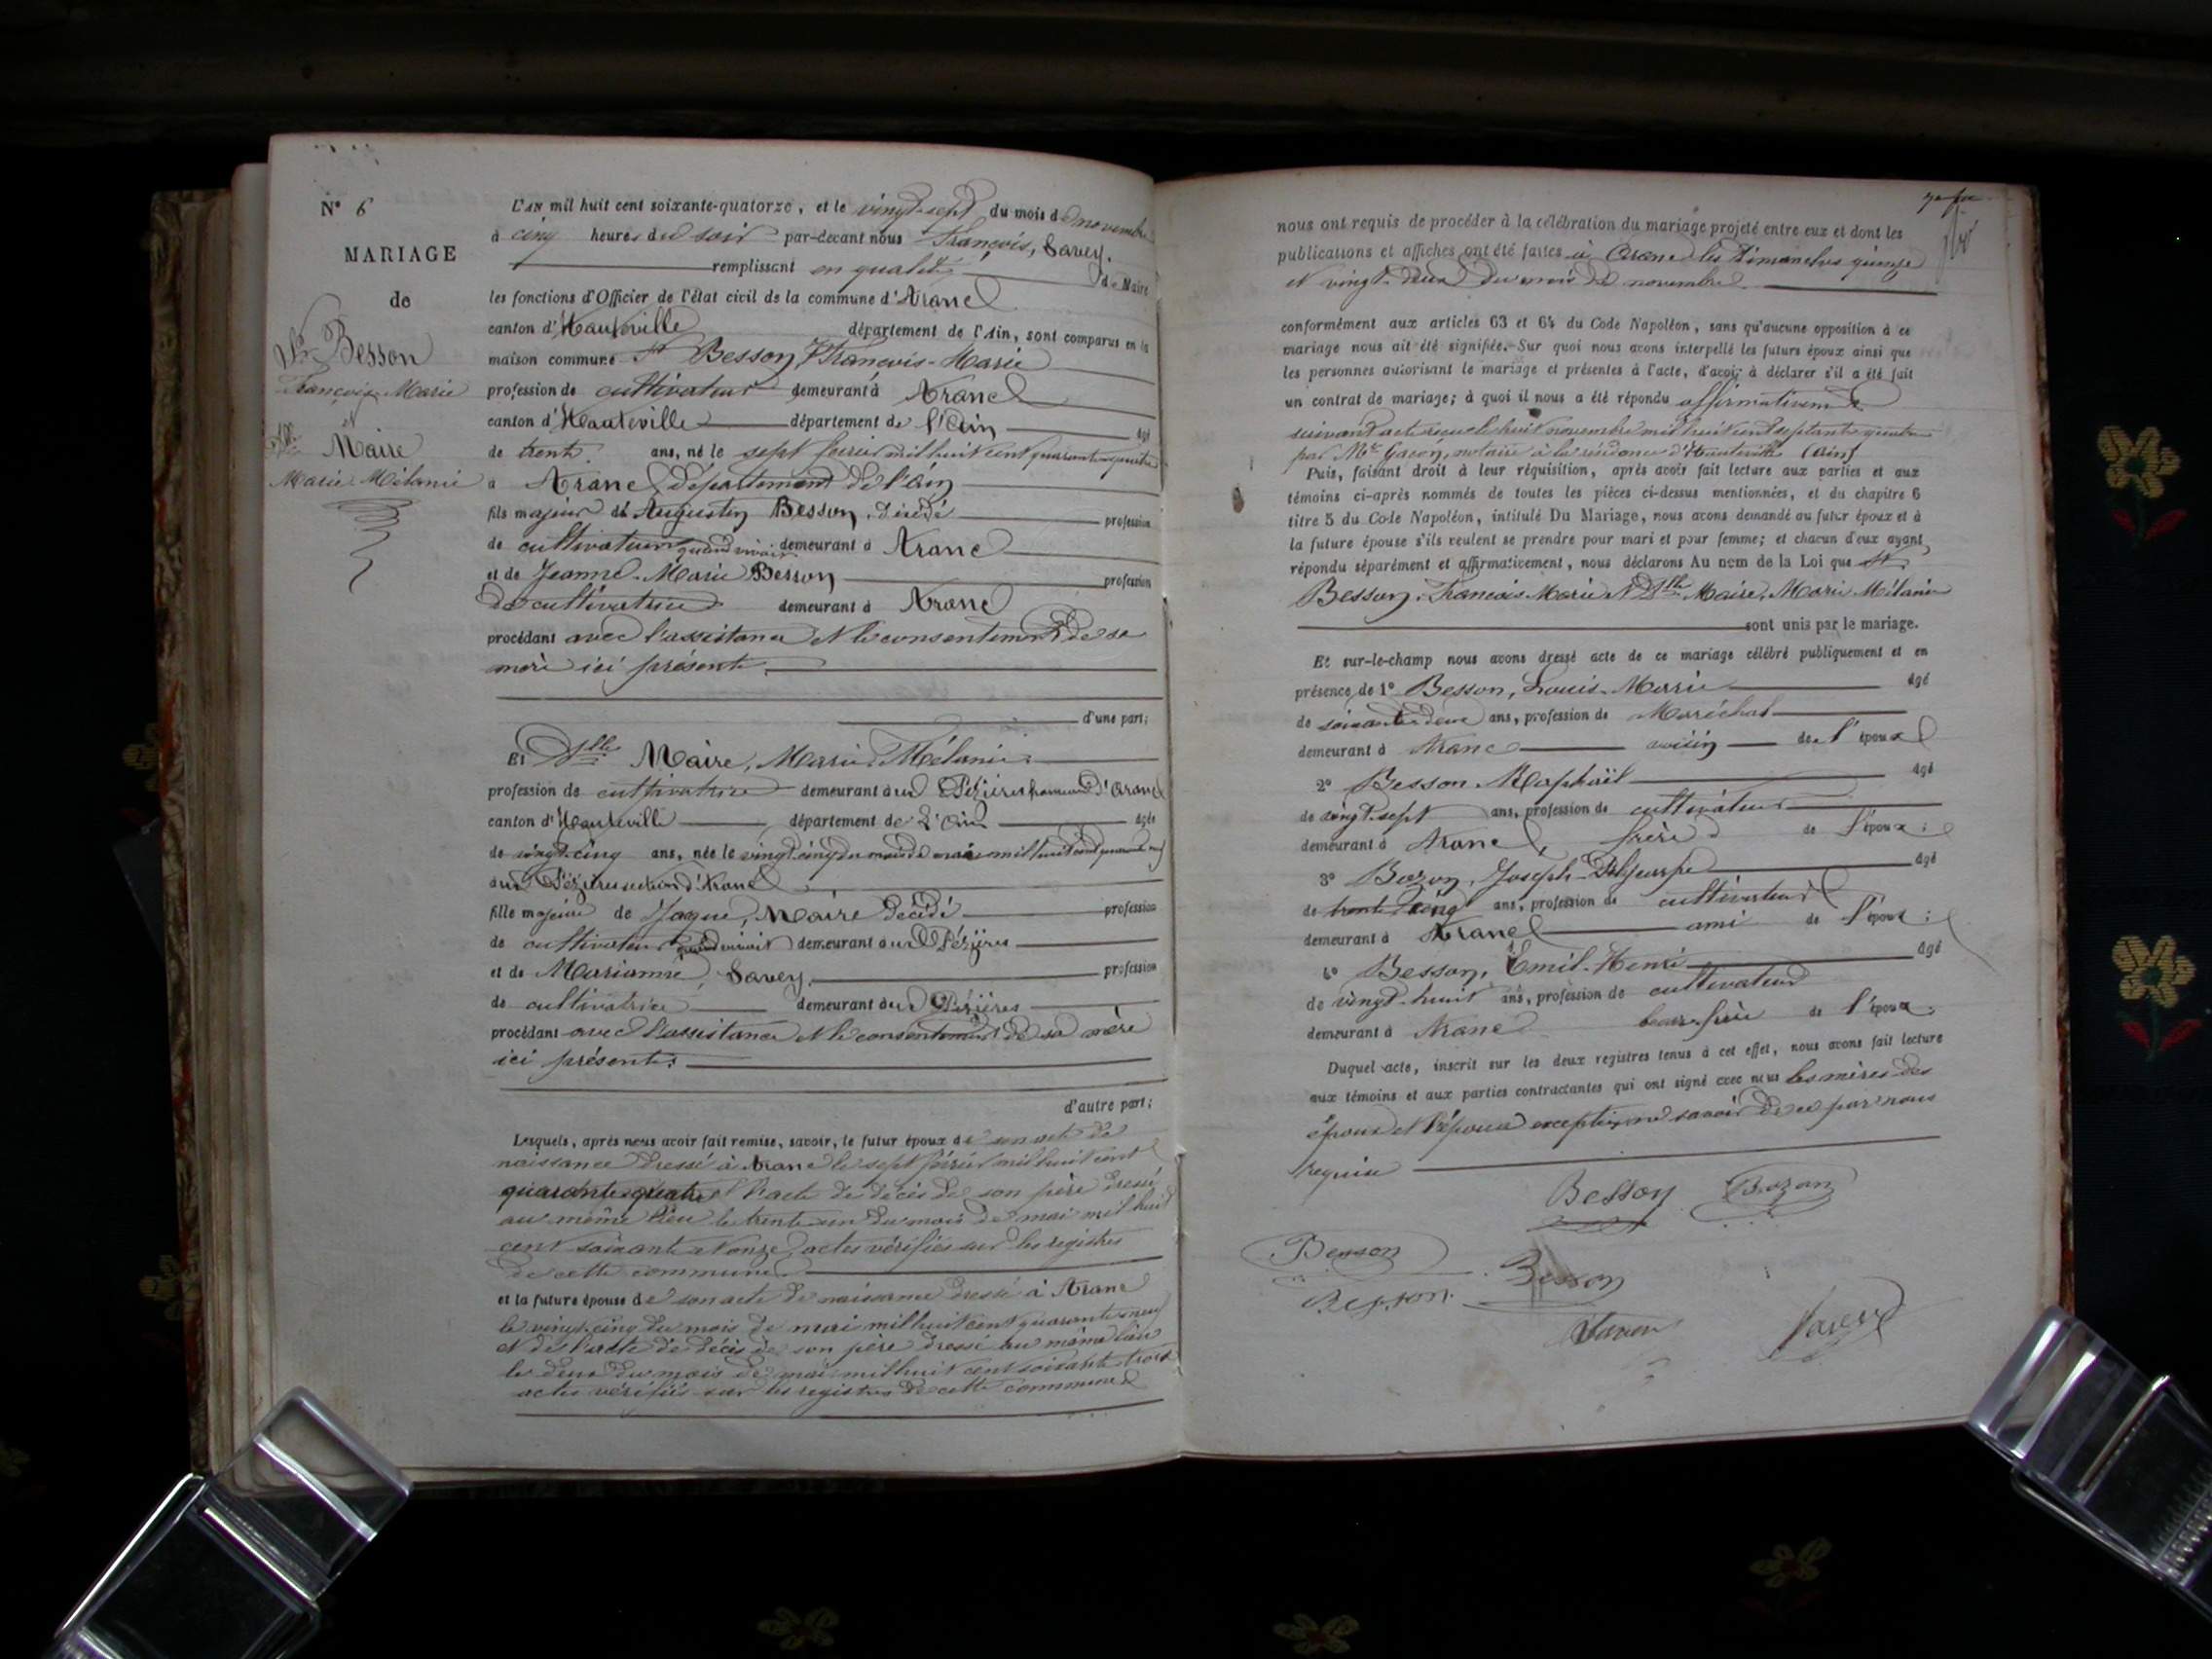 N° 6
MARIAGE
de
Sr Besson
François-Marie
et
Dlle Maire
Marie Mélanie
L'AN mil huit cent soixante-quatorze, et le vingt-sept du mois de novembre
à cinq heures du soir par-devant nous François, Savey.
remplissant en qualité de Maire
les fonctions d'Officier de l'état civil de la commune d'Aranc
canton d'Hauteville département de l'Ain, sont comparus en la
maison commune Sr Besson, François-Marie
profession de cultivateur demeurant à Aranc
canton d'Hauteville département de l'Ain âgé
de trente ans, né le sept février mil huit cent quarante quatre
à Aranc, département de l'Ain
fils majeur de Augustin Besson, décédé profession
de cultivateur quand vivait demeurant à Aranc
et de Jeanne-Marie Besson profession
de cultivatrice demeurant à Aranc
procédant avec l'assistance et le consentement de sa
mère ici présente.
d'une part;
Et Dlle Maire, Marie Mélanie
profession de cultivatrice demeurant aux Pézières hameau d'Aranc
canton d'Hauteville département de L'Ain âgée
de vingt-cinq ans, née le vingt cinq du mois de mai mil huit cent quarante neuf
aux Pézières section d'Aranc
fille majeure de Jaque, Maire décédé profession
de cultivateur quand vivait demeurant aux Pézières
et de Marianne, Savey. profession
de cultivatrice demeurant aux Pézières
procédant avec l'assistance et le consentement de sa mère
ici présente.
d'autre part;
Lesquels, après nous avoir fait remise, savoir, le futur époux de son acte de
naissance dressé à Aranc le sept février mil huit cent
quarante quatre l'acte de décès de son père dressé
au même lieu le trente un du mois de mai mil huit
cent soixante et onze, actes vérifiés sur les registres
de cette commune.
et la future épouse de son acte de naissance dressé à Aranc
le vingt-cinq du mois de mai mil huit cent quarante neuf
et de l'acte de décès de son père dressé au même lieu
le deux du mois de mai mil huit cent soixante trois
actes vérifiés sur les registres de cette commune
nous ont requis de procéder à la célébration du mariage projeté entre eux et dont les
publications et affiches ont été faites à Aranc les Dimanches quinze
et vingt-deux du mois de novembre.
conformément aux articles 63 et 64 du Code Napoléon, sans qu'aucune opposition à ce
mariage nous ait été signifiée. Sur quoi nous avons interpellé les futurs époux ainsi que
les personnes autorisant le mariage et présentes à l'acte, d'avoir à déclarer s'il a été fait
un contrat de mariage; à quoi il nous a été répondu affirmativement
suivant acte reçu le huit novembre mil huit cent septante quatre
par Me notaire à la résidence d'Hauteville (Ain)
Puis, faisant droit à leur réquisition, après avoir fait lecture aux parties et aux
témoins ci-après nommés de toutes les pièces ci-dessus mentionnées, et du chapitre 6
titre 5 du Code Napoléon, intitulé Du Mariage, nous avons demandé au futur époux et à
la future épouse s'ils veulent se prendre pour mari et pour femme; et chacun d'eux ayant
répondu séparément et affirmativement, nous déclarons Au nom de la Loi que Sr
Besson, François Marie et Dlle Maire, Marie Mélanie
sont unis par le mariage.
Et sur-le-champ nous avons dressé acte de ce mariage célébré publiquement et en
présence de 1° Besson, Louis-Marie âgé
de soixante deux ans, profession de Maréchal
demeurant à Aranc voisin de l'époux
2° Besson Raphaël âgé
de vingt-sept ans, profession de cultivateur
demeurant à Aranc, frère de l'époux;
3° Bozon, Joseph âgé
de trente cinq ans, profession de cultivateur
demeurant à Aranc ami de l'époux;
4° Besson, Emil-Henri âgé
de vingt-huit ans, profession de cultivateur
demeurant à Aranc beau-frère de l'époux.
Duquel acte, inscrit sur les deux registres tenus à cet effet, nous avons fait lecture
aux témoins et aux parties contractantes qui ont signé avec nous les mères des
époux et l'épouse exceptée savoir de ce par nous
requise
Besson Bozon
Besson Besson
Besson
Savey